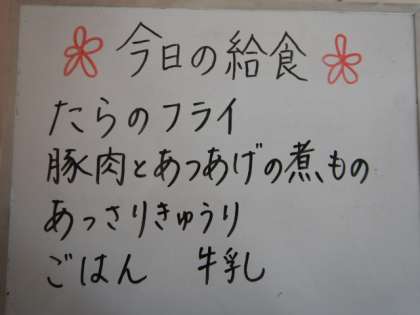 今日の給食
たらのフライ
豚肉とあつあげの煮もの
あっさりきゅうり
ごはん 牛乳